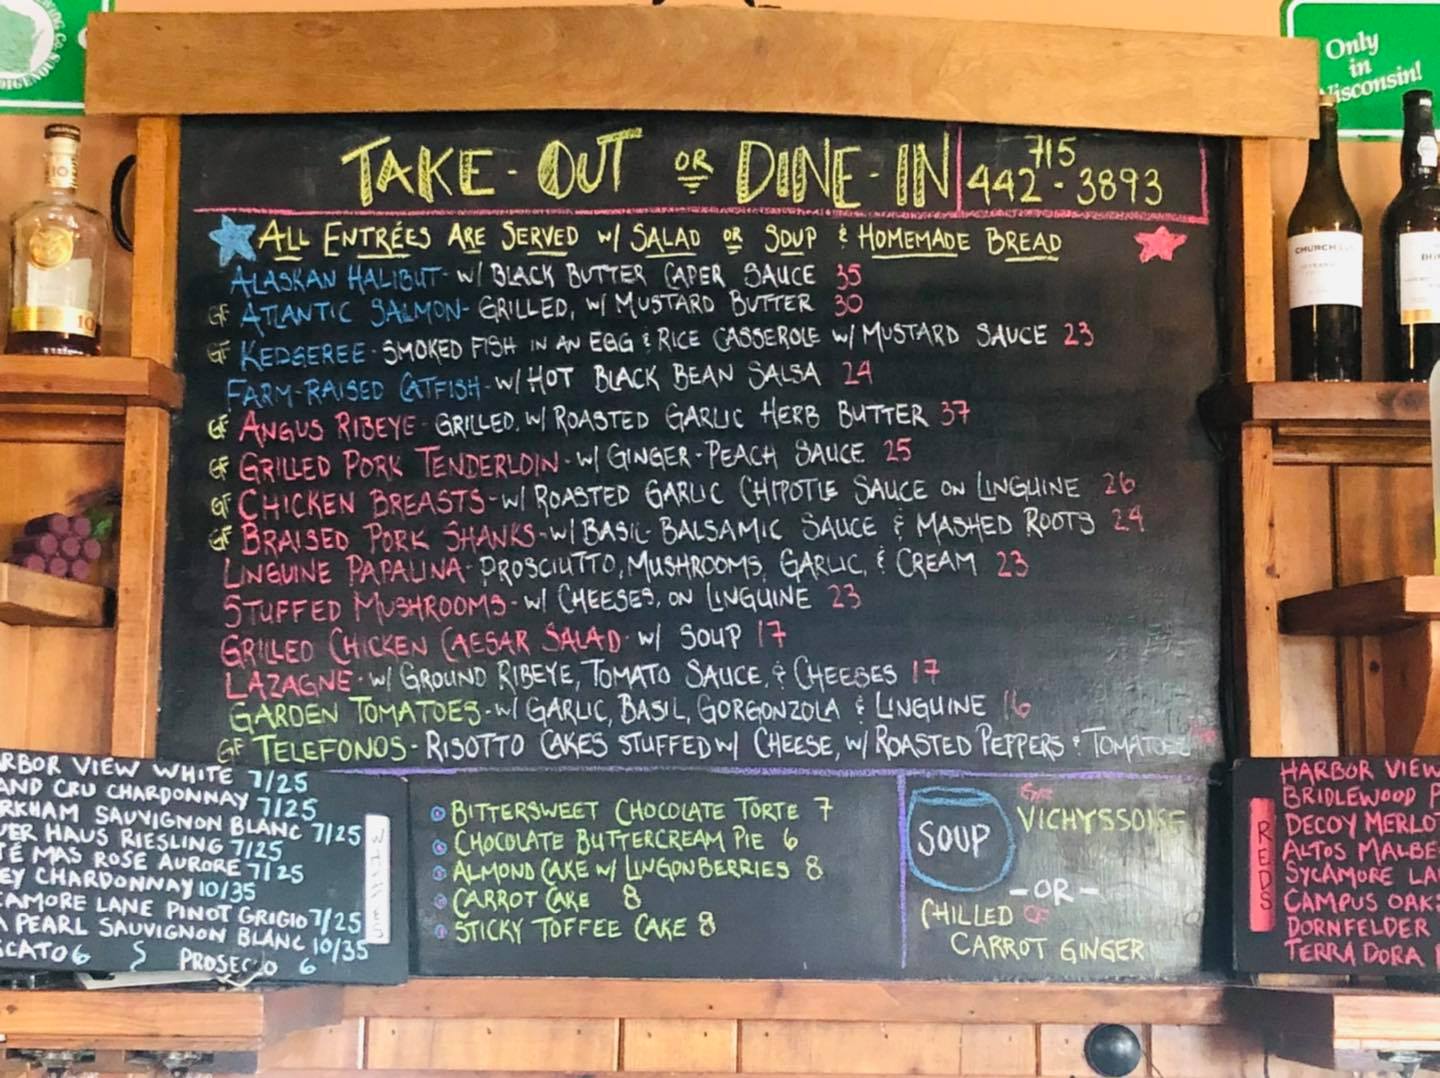 Only
in
Wisconsin!
TAKE-OUT OR DINE-IN
715
442-3893
ALL ENTRÉES ARE SERVED W/ SALAD OR SOUP & HOMEMADE BREAD
ALASKAN HALIBUT- W/ BLACK BUTTER CAPER SAUCE 35
GF ATLANTIC SALMON- GRILLED, W/ MUSTARD BUTTER 30
GF KEDGEREE- SMOKED FISH IN AN EGG & RICE CASSEROLE W/ MUSTARD SAUCE 23
FARM-RAISED CATFISH- W/ HOT BLACK BEAN SALSA 24
GF ANGUS RIBEYE- GRILLED, W/ ROASTED GARLIC HERB BUTTER 37
GF GRILLED PORK TENDERLOIN- W/ GINGER-PEACH SAUCE 25
GF CHICKEN BREASTS- W/ ROASTED GARLIC CHIPOTLE SAUCE ON LINGUINE 26
GF BRAISED PORK SHANKS- W/ BASIL-BALSAMIC SAUCE & MASHED ROOTS 24
LINGUINE PAPALINA- PROSCIUTTO, MUSHROOMS, GARLIC, & CREAM 23
STUFFED MUSHROOMS- W/ CHEESES, ON LINGUINE 23
GRILLED CHICKEN CAESAR SALAD- W/ SOUP 17
LAZAGNE- W/ GROUND RIBEYE, TOMATO SAUCE, & CHEESES 17
GARDEN TOMATOES- W/ GARLIC, BASIL, GORGONZOLA & LINGUINE 16
GF TELEFONOS- RISOTTO CAKES STUFFED W/ CHEESE, W/ ROASTED PEPPERS & TOMATOES
RBOR VIEW WHITE 7/25
AND CRU CHARDONNAY 7/25
RKHAM SAUVIGNON BLANC 7/25
ER HAUS RIESLING 7/25
TÉ MAS ROSÉ AURORE 7/25
EY CHARDONNAY 10/35
AMORE LANE PINOT GRIGIO 7/25
A PEARL SAUVIGNON BLANC 10/35
SCATO 6 PROSECCO 6
WHITES
BITTERSWEET CHOCOLATE TORTE 7
CHOCOLATE BUTTERCREAM PIE 6
ALMOND CAKE W/ LINGONBERRIES 8
CARROT CAKE 8
STICKY TOFFEE CAKE 8
SOUP
GF
VICHYSSOISE
-OR-
CHILLED GF
CARROT GINGER
REDS
HARBOR VIEW
BRIDLEWOOD P
DECOY MERLOT
ALTOS MALBE
SYCAMORE LA
CAMPUS OAKS
DORNFELDER
TERRA DORA
10